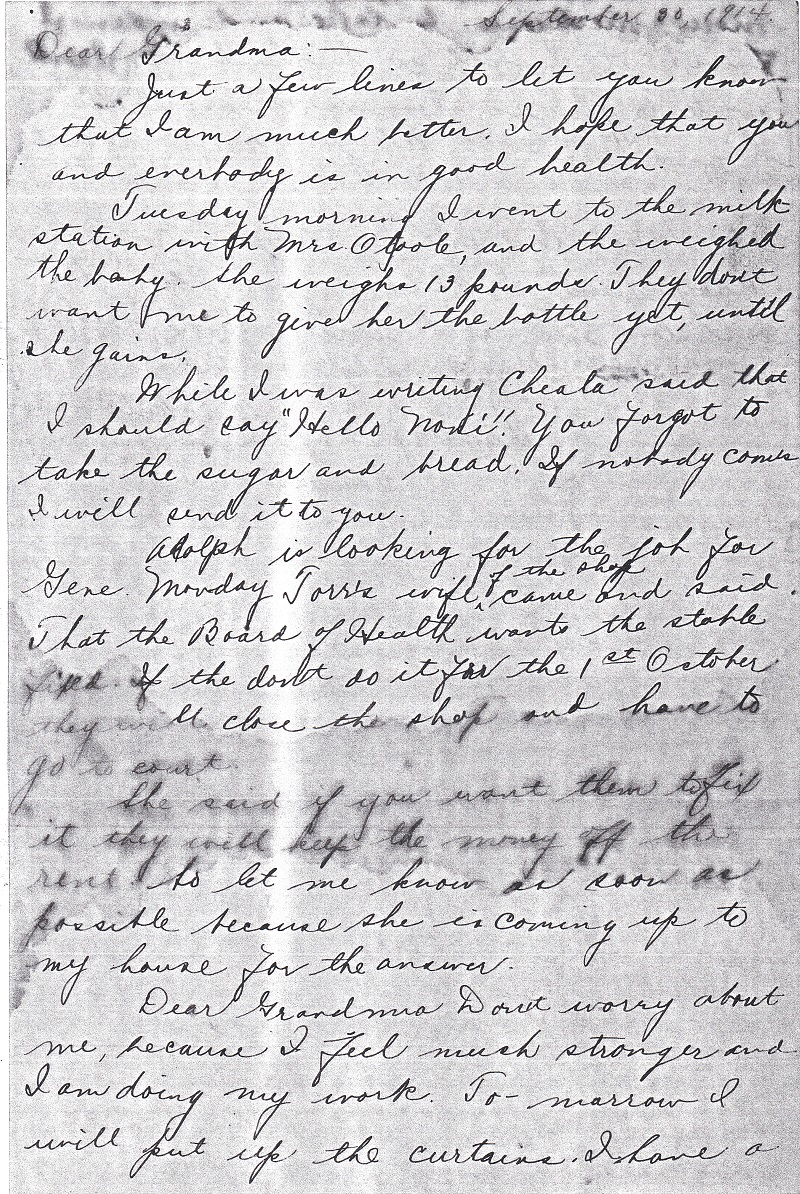 September 30, 1914.
Dear Grandma:—
Just a few lines to let you know
that I am much better. I hope that you
and everbody is in good health.
Tuesday morning I went to the milk
station with Mrs. Otoole, and the weighed
the baby. She weighs 13 pounds. They dont
want me to give her the bottle yet, until
she gains.
While I was writing Cheala said that
I should say "Hello Noni"! You forgot to
take the sugar and bread. If nobody comes
I will send it to you.
Adolph is looking for the job for
Gene. Monday Torr's wife, of the shop came and said.
That the Board of Health wants the stable
fixed. If the don't do it for the 1st October
they will close the shop and have to
go to court.
She said if you want them to fix
it they will keep the money off the
rent. So let me know as soon as
possible because she is coming up to
my house for the answer.
Dear Grandma Dont worry about
me, because I feel much stronger and
I am doing my work. To-marrow I
will put up the curtains. I have a